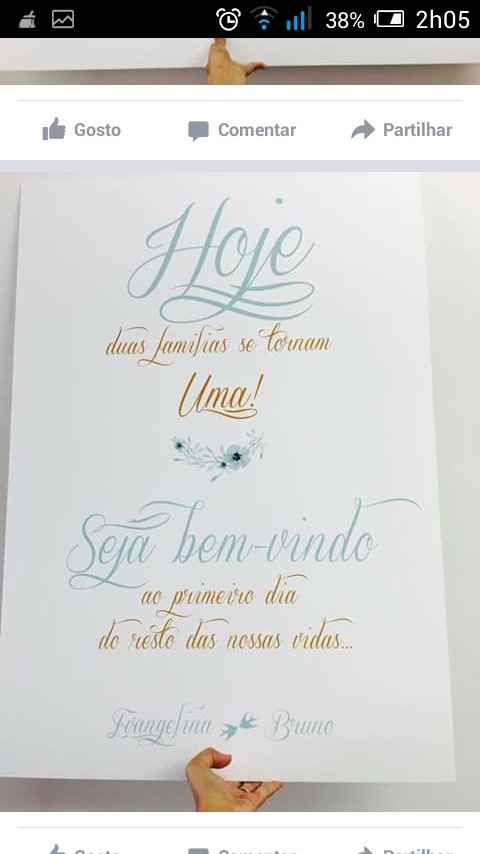 38% 2h05
Gosto Comentar Partilhar
Hoje
duas famílias se tornam
Uma!
Seja bem-vindo
ao primeiro dia
do resto das nossas vidas...
Evangelina Bruno
Gosto Comentar Partilhar